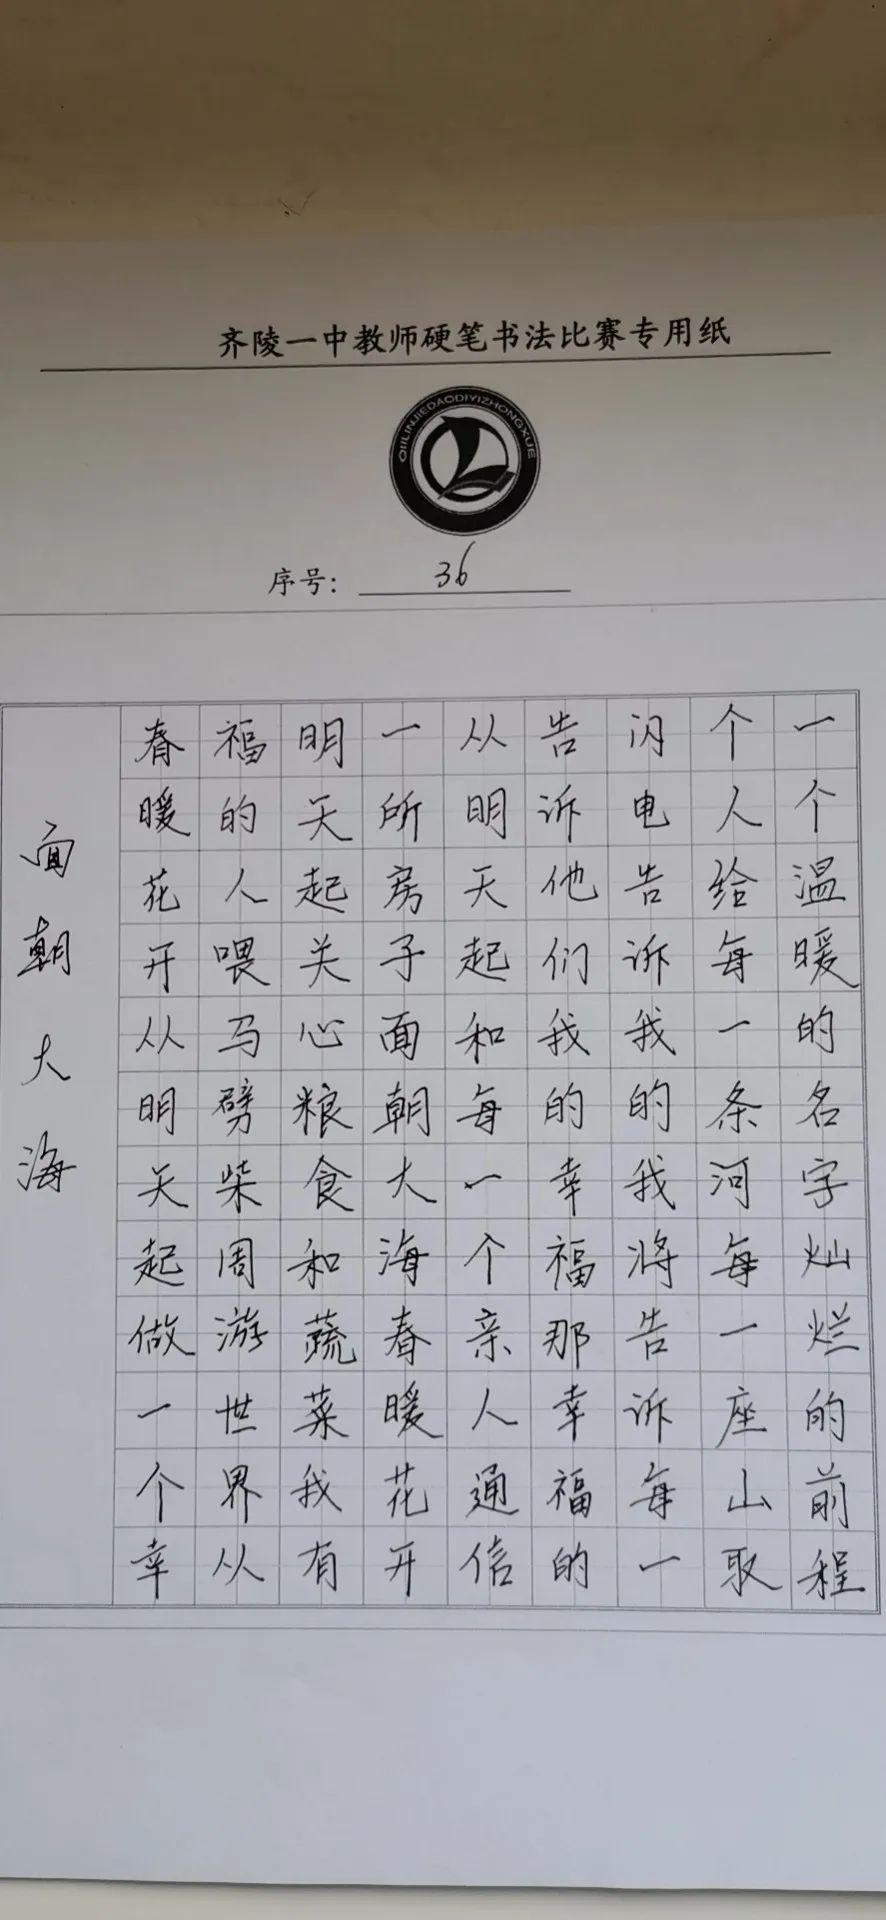 齐陵一中教师硬笔书法比赛专用纸
QIILINJIEDAODIYIZHONGXUE
序号: 36
面朝大海
春暖花开从明天起做一个幸
福的人喂马劈柴周游世界从
明天起关心粮食和蔬菜我有
一所房子面朝大海春暖花开
从明天起和每一个亲人通信
告诉他们我的幸福那幸福的
闪电告诉我的我将告诉每一
个人给每一条河每一座山取
一个温暖的名字灿烂的前程